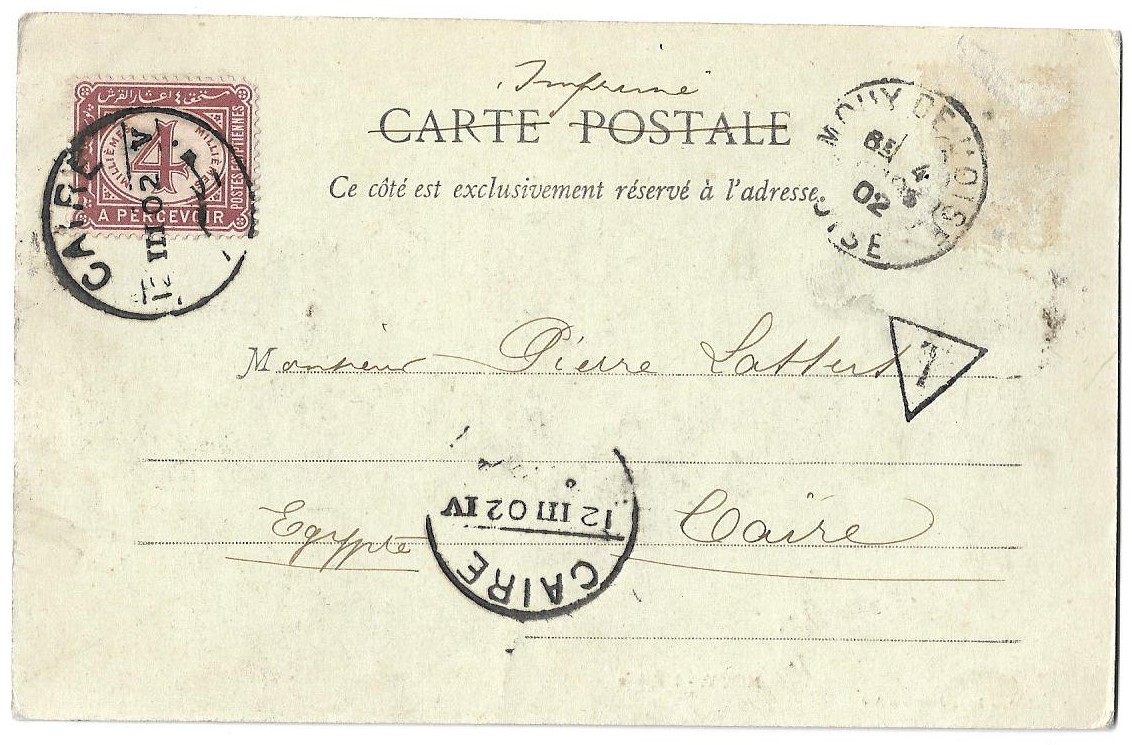 Imprimé
CARTE POSTALE
Ce côté est exclusivement réservé à l'adresse.
MILLIÈMES
4
MILLIÈMES
POSTES EGYPTIENNES
A PERCEVOIR
CAIRE
12 III 02 IV
MOUY DE L'OISE
8E
4
02
OISE
T
Monsieur Pierre Lattest
Egypte Caire
12 III 02 IV
CAIRE